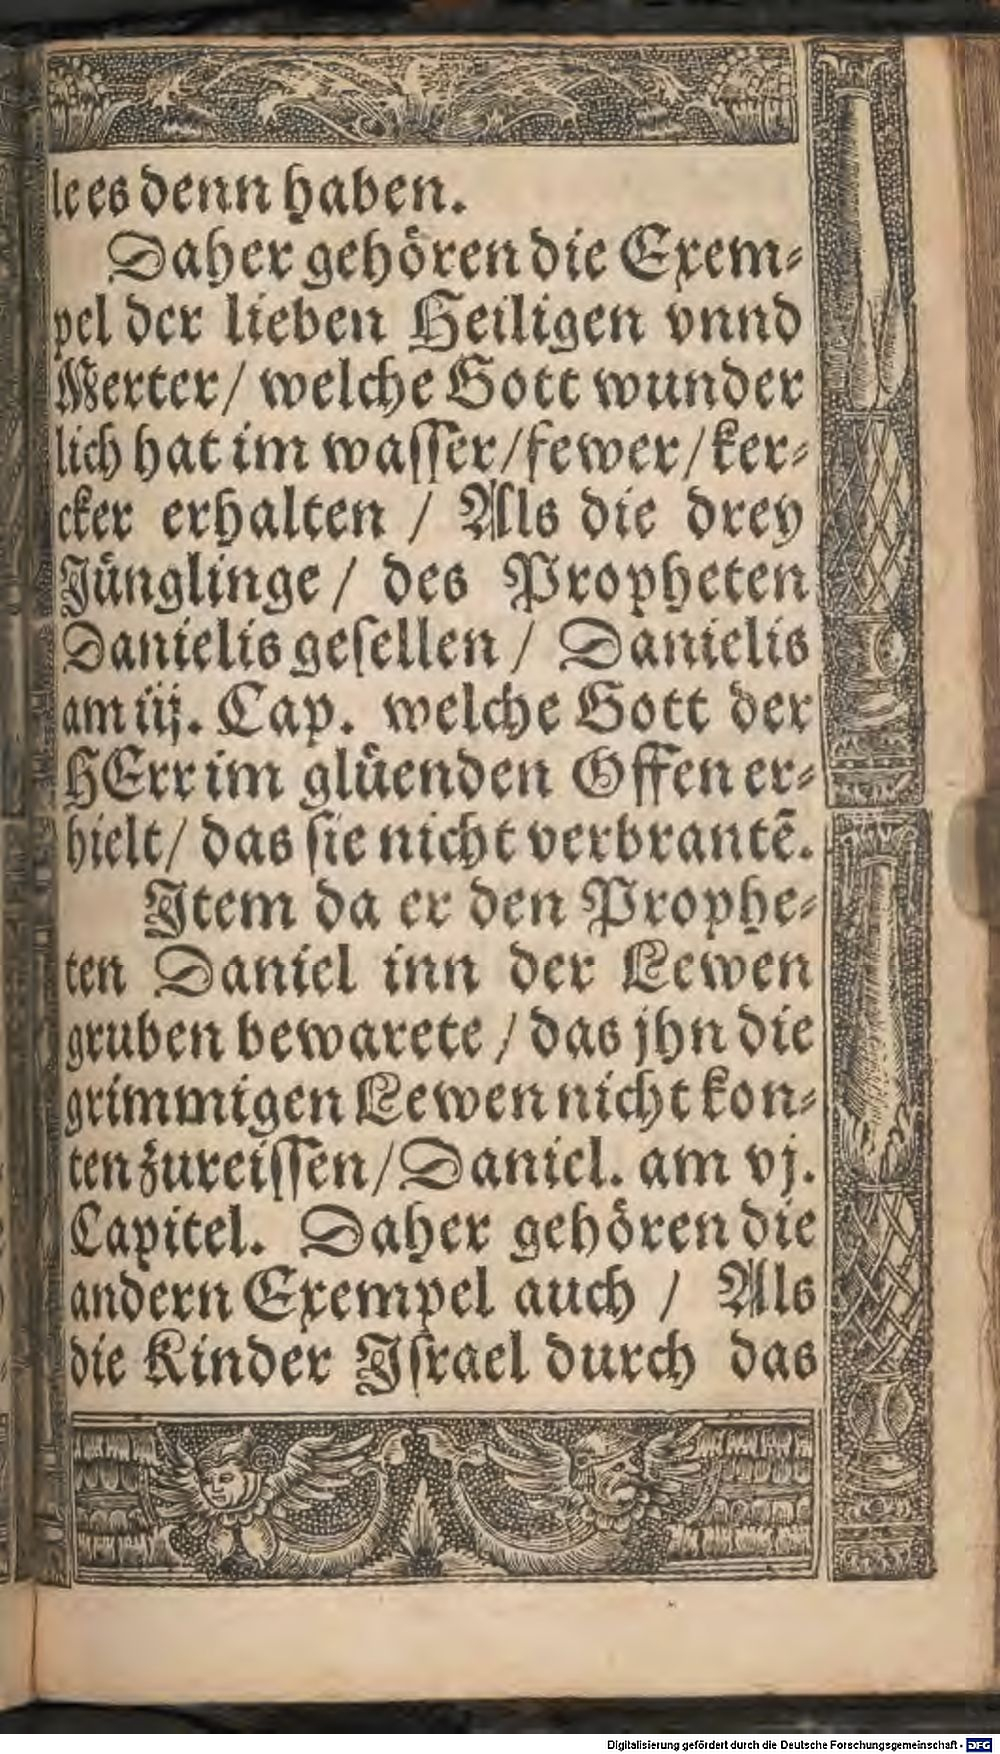 le es denn haben.
Daher gehören die Exem⸗
pel der lieben Heiligen vnnd
Merter/ welche Gott wunder
lich hat im waſſer/fewer/ker⸗
cker erhalten / Als die drey
Jünglinge / des Propheten
Danielis geſellen / Danielis
am iij. Cap. welche Gott der
HErr im glüenden Offen er⸗
hielt/ das ſie nicht verbrantẽ.
Item da er den Prophe⸗
ten Daniel inn der Lewen
gruben bewarete / das jhn die
grimmigen Lewen nicht kon⸗
ten zureiſſen/ Daniel. am vj.
Capitel. Daher gehören die
andern Exempel auch / Als
die Kinder Iſrael durch das
Digitalisierung gefördert durch die Deutsche Forschungsgemeinschaft - DFG